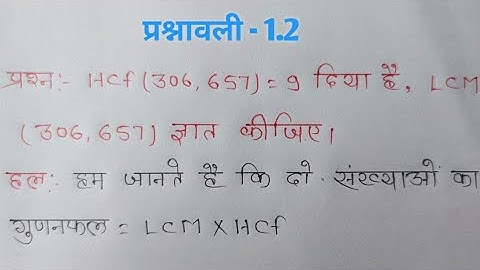 प्रश्नावली - 1.2
प्रश्न:- HCf (306, 657) = 9 दिया है, LCM
(306, 657) ज्ञात कीजिए।
हल:- हम जानते है कि दो संख्याओं का
गुणनफल = LCM X HCf